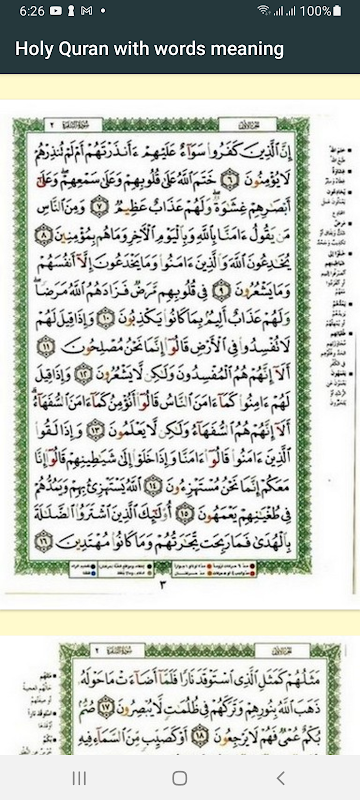 6:26
100%
Holy Quran with words meaning
سورة البقرة ٢
الجزء الأول
إِنَّ الَّذِينَ كَفَرُوا سَوَاءٌ عَلَيْهِمْ ءَأَنذَرْتَهُمْ أَمْ لَمْ تُنذِرْهُمْ
لَا يُؤْمِنُونَ ٦ خَتَمَ اللَّهُ عَلَىٰ قُلُوبِهِمْ وَعَلَىٰ سَمْعِهِمْ وَعَلَىٰ
أَبْصَٰرِهِمْ غِشَٰوَةٌ وَلَهُمْ عَذَابٌ عَظِيمٌ ٧ وَمِنَ النَّاسِ
مَن يَقُولُ ءَامَنَّا بِاللَّهِ وَبِالْيَوْمِ الْآخِرِ وَمَا هُم بِمُؤْمِنِينَ ٨
يُخَٰدِعُونَ اللَّهَ وَالَّذِينَ ءَامَنُوا وَمَا يَخْدَعُونَ إِلَّا أَنفُسَهُمْ
وَمَا يَشْعُرُونَ ٩ فِي قُلُوبِهِم مَّرَضٌ فَزَادَهُمُ اللَّهُ مَرَضًا
وَلَهُمْ عَذَابٌ أَلِيمٌ بِمَا كَانُوا يَكْذِبُونَ ١٠ وَإِذَا قِيلَ لَهُمْ
لَا تُفْسِدُوا فِي الْأَرْضِ قَالُوا إِنَّمَا نَحْنُ مُصْلِحُونَ ١١
أَلَا إِنَّهُمْ هُمُ الْمُفْسِدُونَ وَلَٰكِن لَّا يَشْعُرُونَ ١٢ وَإِذَا قِيلَ
لَهُمْ ءَامِنُوا كَمَا ءَامَنَ النَّاسُ قَالُوا أَنُؤْمِنُ كَمَا ءَامَنَ السُّفَهَاءُ
أَلَا إِنَّهُمْ هُمُ السُّفَهَاءُ وَلَٰكِن لَّا يَعْلَمُونَ ١٣ وَإِذَا لَقُوا
الَّذِينَ ءَامَنُوا قَالُوا ءَامَنَّا وَإِذَا خَلَوْا إِلَىٰ شَيَٰطِينِهِمْ قَالُوا إِنَّا
مَعَكُمْ إِنَّمَا نَحْنُ مُسْتَهْزِءُونَ ١٤ اللَّهُ يَسْتَهْزِئُ بِهِمْ وَيَمُدُّهُمْ
فِي طُغْيَٰنِهِمْ يَعْمَهُونَ ١٥ أُولَٰئِكَ الَّذِينَ اشْتَرَوُا الضَّلَٰلَةَ
بِالْهُدَىٰ فَمَا رَبِحَت تِّجَٰرَتُهُمْ وَمَا كَانُوا مُهْتَدِينَ ١٦
٣
سورة البقرة ٢
الجزء الأول
مَثَلُهُمْ كَمَثَلِ الَّذِي اسْتَوْقَدَ نَارًا فَلَمَّا أَضَاءَتْ مَا حَوْلَهُ
ذَهَبَ اللَّهُ بِنُورِهِمْ وَتَرَكَهُمْ فِي ظُلُمَٰتٍ لَّا يُبْصِرُونَ ١٧ صُمٌّ
بُكْمٌ عُمْيٌ فَهُمْ لَا يَرْجِعُونَ ١٨ أَوْ كَصَيِّبٍ مِّنَ السَّمَاءِ فِيهِ